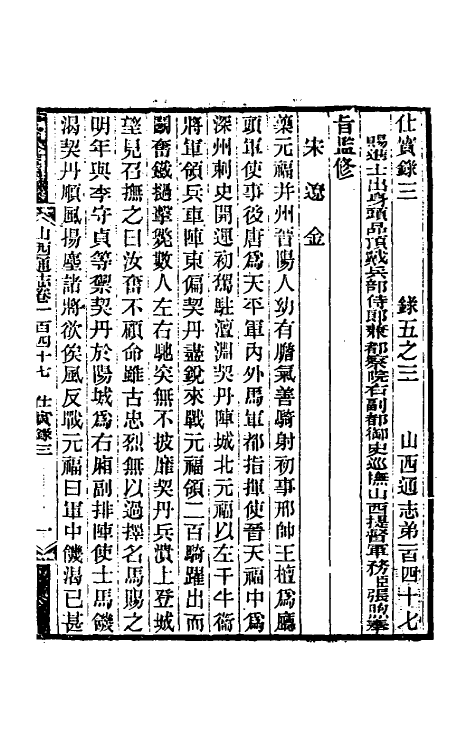 仕實錄三　　錄五之三　　山西通志第一百四十七
賜進士出身頭品頂戴兵部侍郎兼都察院右副都御史巡撫山西提督軍務臣張煦奉
旨監修
宋遼金
藥元福并州晉陽人幼有膽氣善騎射初事邢帥王檀爲廳
頭軍使事後唐爲天平軍內外馬軍都指揮使晉天福中爲
深州刺史開運初駕駐澶淵契丹陣城北元福以左千牛衞
將軍領兵車陣東偏契丹盡銳來戰元福領二百騎躍出而
鬬奮鐵撾擊斃數人左右馳突無不披靡契丹兵潰上登城
望見召撫之曰汝奮不顧命雖古忠烈無以過擇名馬賜之
明年與李守貞等禦契丹於陽城爲右廂副排陣使士馬饑
渴契丹順風揚塵諸將欲俟風反戰元福曰軍中饑渴已甚
山西通志卷一百四十七　仕實錄三　一